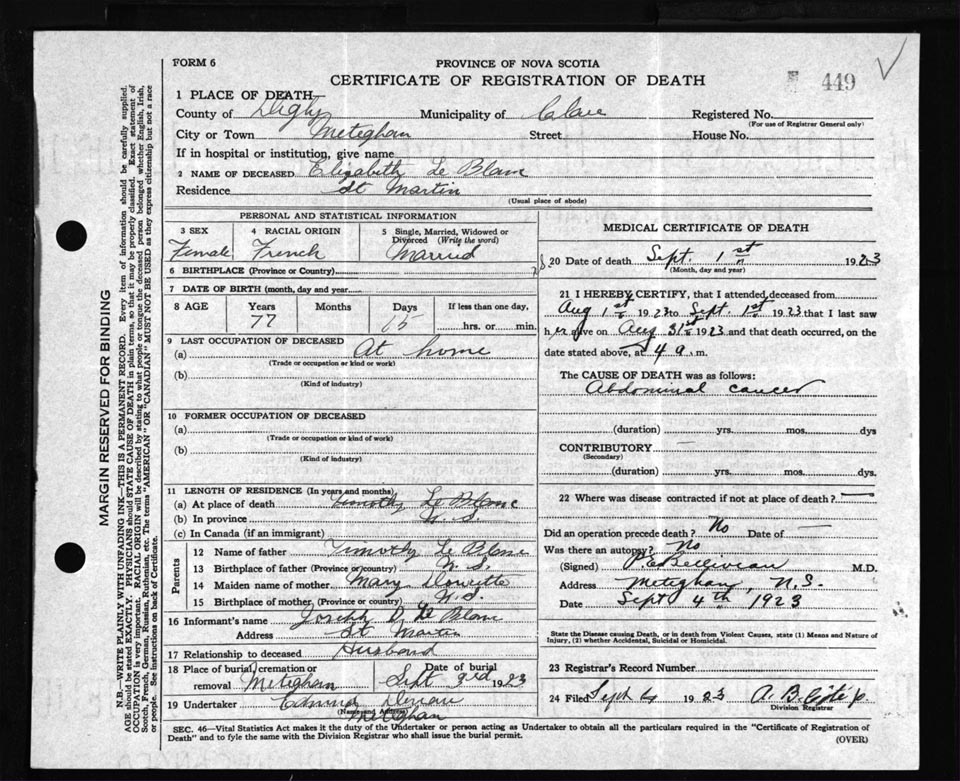 FORM 6
PROVINCE OF NOVA SCOTIA
CERTIFICATE OF REGISTRATION OF DEATH
449
1 PLACE OF DEATH—
County of Digby Municipality of Clare Registered No.
(For use of Registrar General only)
City or Town Meteghan Street House No.
If in hospital or institution, give name
2 NAME OF DECEASED Elizabeth Le Blanc
Residence St Martin
(Usual place of abode)
PERSONAL AND STATISTICAL INFORMATION
3 SEX 4 RACIAL ORIGIN 5 Single, Married, Widowed or Divorced (Write the word)
Female French Married
6 BIRTHPLACE (Province or Country)
7 DATE OF BIRTH (month, day and year)
8 AGE Years Months Days If less than one day,
77 15 hrs. or min.
9 LAST OCCUPATION OF DECEASED
(a) At home
(Trade or occupation or kind or work)
(b)
(Kind of industry)
10 FORMER OCCUPATION OF DECEASED
(a)
(Trade or occupation or kind of work)
(b)
(Kind of industry)
11 LENGTH OF RESIDENCE (In years and months)
(a) At place of death Timothy Le Blanc
(b) In province N. S.
(c) In Canada (if an immigrant)
Parents
12 Name of father Timothy Le Blanc
13 Birthplace of father (Province or country) N. S.
14 Maiden name of mother Mary
15 Birthplace of mother (Province or country) N. S.
16 Informant's name Joseph Le Blanc
Address St Martin
17 Relationship to deceased Husband
18 Place of burial, cremation or removal Meteghan Date of burial Sept 3rd 1923
19 Undertaker
(Name and Address)
Meteghan
MEDICAL CERTIFICATE OF DEATH
20 Date of death Sept. 1st 1923
(Month, day and year)
21 I HEREBY CERTIFY, that I attended deceased from
Aug 1st 1923 to Sept. 1st 1923 that I last saw
her alive on Aug 31st 1923 and that death occurred, on the
date stated above, at 4 a. m.
The CAUSE OF DEATH was as follows:
Abdominal cancer
(duration) yrs. mos. dys
CONTRIBUTORY —
(Secondary)
(duration) yrs. mos. dys.
22 Where was disease contracted if not at place of death? —
Did an operation precede death? No Date of —
Was there an autopsy? No
(Signed) M.D.
Address Meteghan, N.S.
Date Sept 4th 1923
State the Disease causing Death, or in death from Violent Causes, state (1) Means and Nature of
Injury, (2) whether Accidental, Suicidal or Homicidal.
23 Registrar's Record Number
24 Filed Sept 4 1923
Division Registrar
SEC. 46—Vital Statistics Act makes it the duty of the Undertaker or person acting as Undertaker to obtain all the particulars required in the "Certificate of Registration of
Death" and to fyle the same with the Division Registrar who shall issue the burial permit.
(OVER)
MARGIN RESERVED FOR BINDING
N.B.—WRITE PLAINLY WITH UNFADING INK—THIS IS A PERMANENT RECORD. Every item of information should be carefully supplied.
AGE should be stated EXACTLY. PHYSICIANS should STATE CAUSE OF DEATH in plain terms, so that it may be properly classified. Exact statement of
OCCUPATION is very important. RACIAL ORIGIN will be described by stating to what people or tongue the deceased person belonged whether English, Irish,
Scotch, French, German, Russian, Ruthenian, etc. The terms "AMERICAN" OR "CANADIAN" MUST NOT BE USED as they express citizenship but not a race
or people. See instructions on back of Certificate.